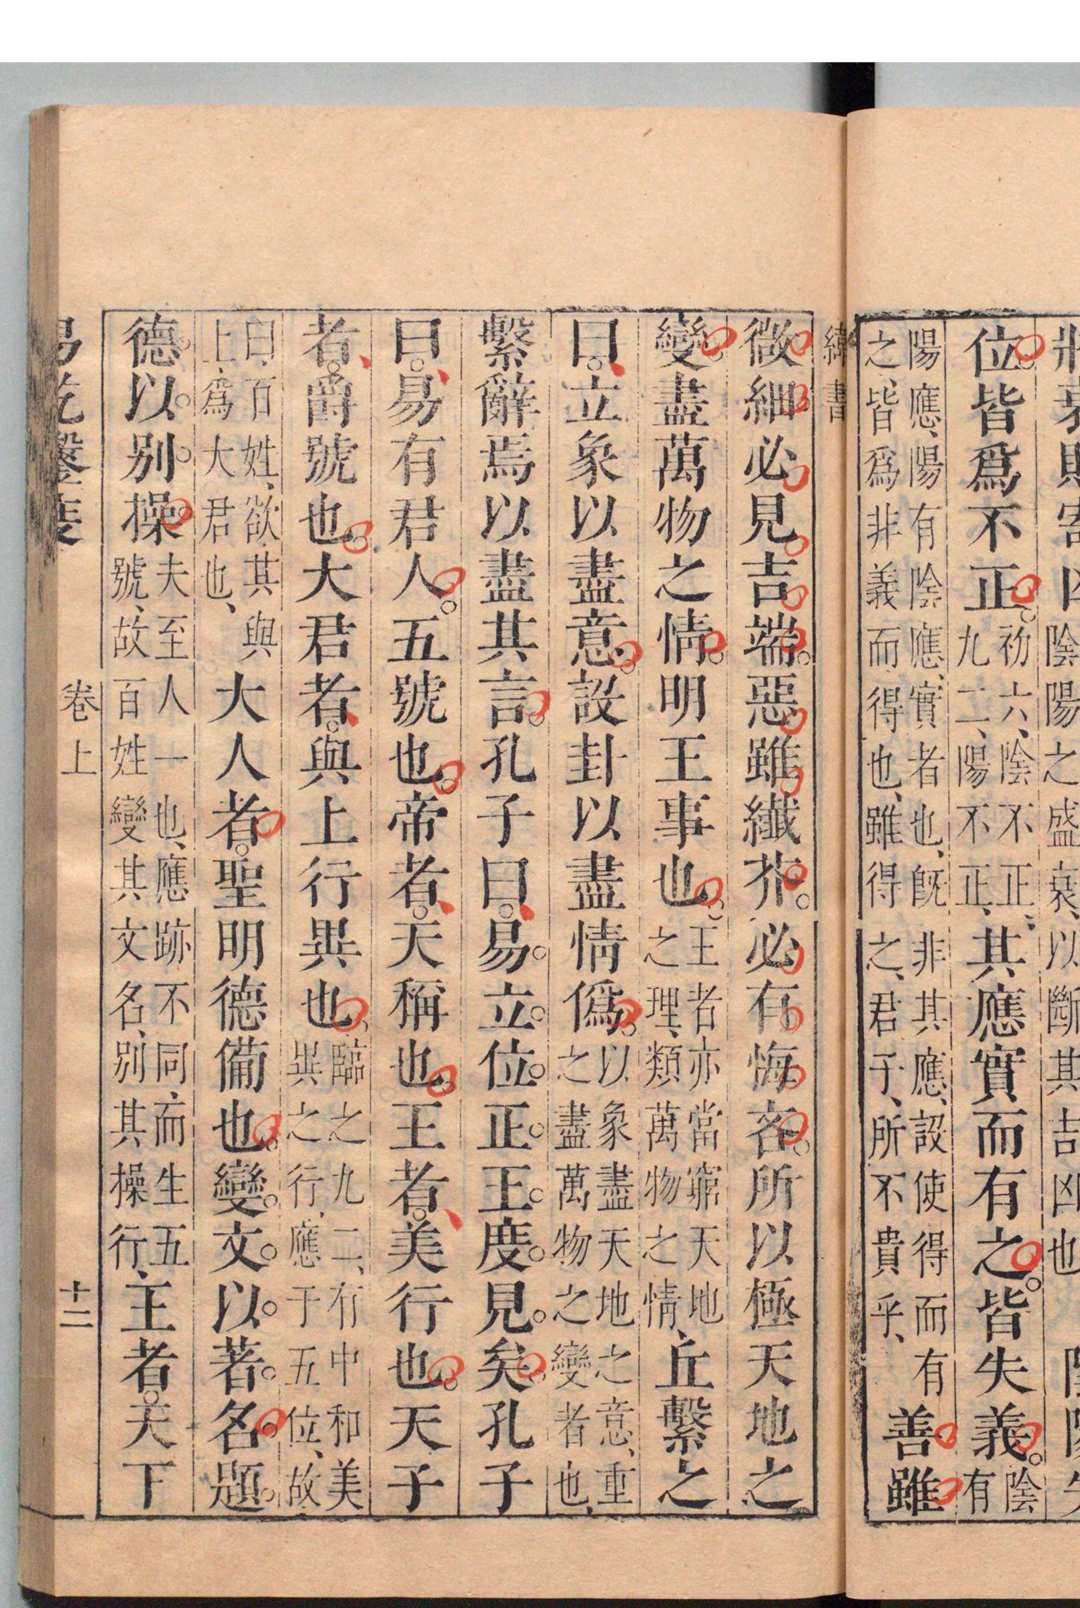 將衰則寄凶陰陽之盛衰、以斷其吉凶也陰陽失
位。皆爲不正。初六、陰不正、九二、陽不正、其應實而有之。皆失義。陰有
陽應、陽有陰應、實者也、既非其應、設使得而有之、皆爲非義而得也、雖得之、君子所不貴乎、善雖
緯書
微細必見。吉端。惡雖纖芥。必有悔吝。所以極天地之
變。盡萬物之情。明王事也。王者亦當窮天地之理、類萬物之情、丘繫之
曰。立象以盡意。設卦以盡情僞。以象盡天地之意、重之盡萬物之變者也、
繫辭焉以盡其言。孔子曰。易。立。位。正。王。度。見。矣。孔子
曰。易有君人。五號也。帝者。天稱也。王者。美行也。天子
者。爵號也。大君者。與上行異也。臨之九二、有中和美異之行、應于五位、故
曰百姓、欲其與上、爲大君也、大人者。聖明德備也。變。文。以。著。名。題。
德。以。別。操。夫至人一也、應跡不同、而生五號、故百姓變其文名、別其操行、王者。天下
易乾鑿度
卷上
十二